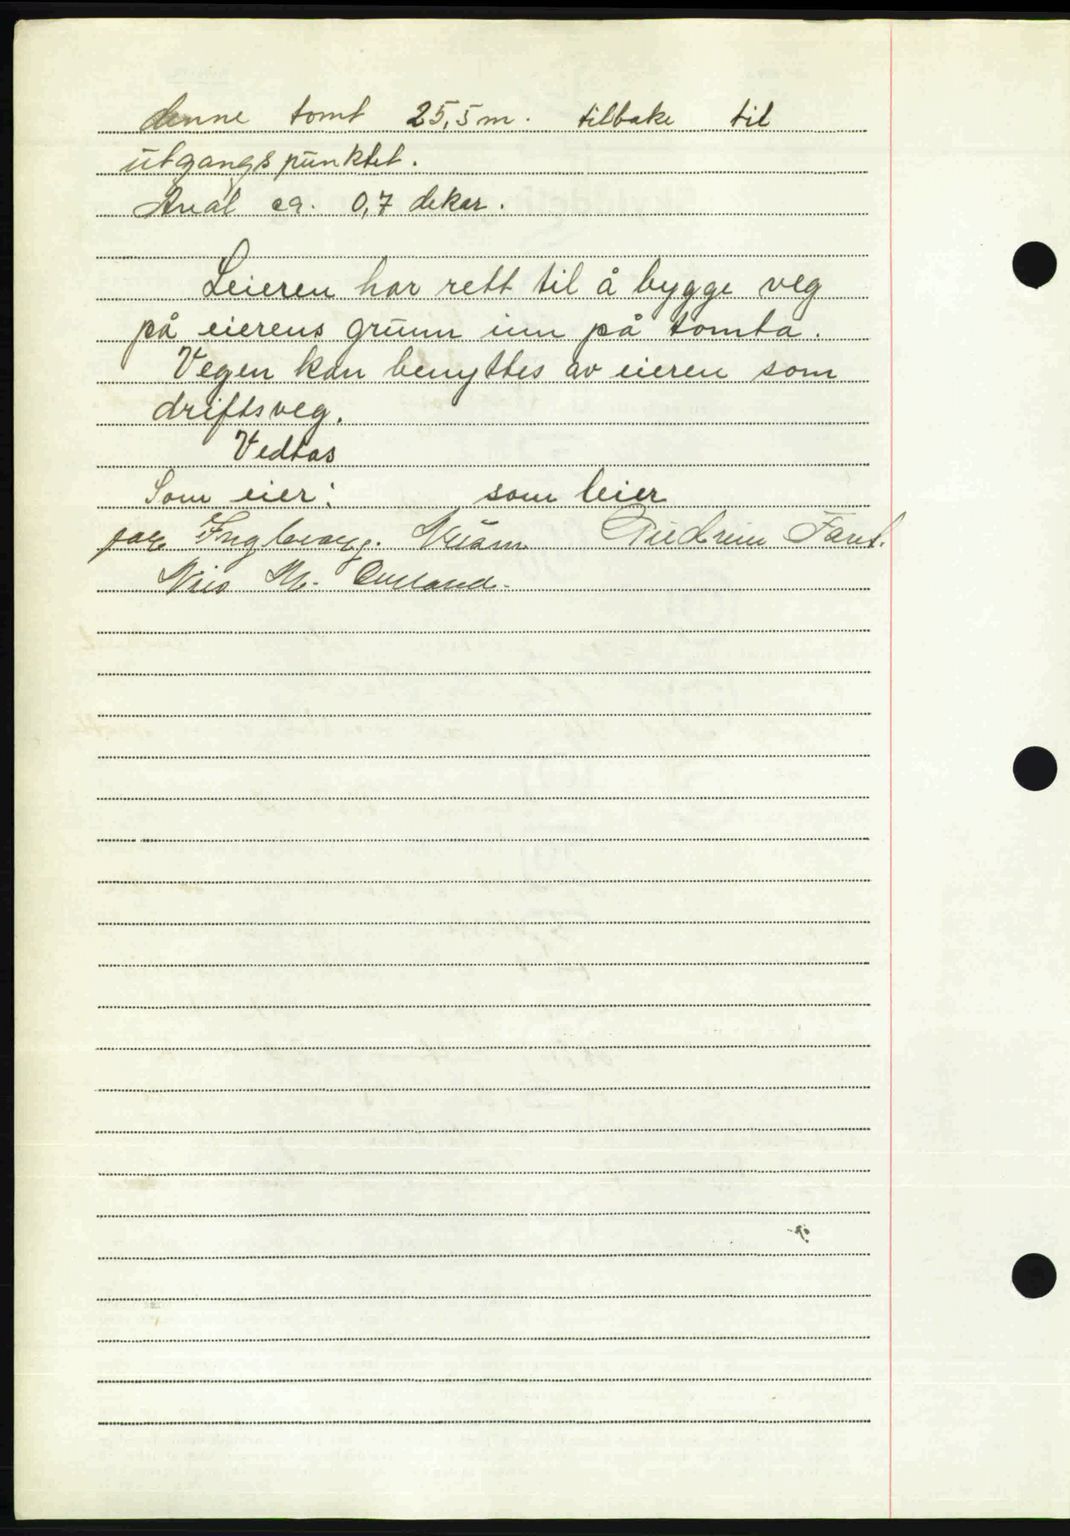 denne tomt 25,5 m. tilbake til
utgangspunktet.
Areal ca. 0,7 dekar.
Leieren har rett til å bygge veg
på eierens grunn inn på tomta.
Vegen kan benyttes av eieren som
driftsveg.
Vedtas
Som eier: som leier